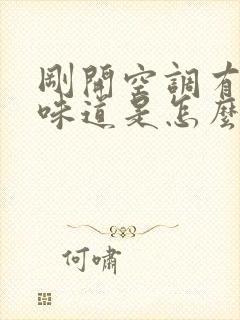 剛開空調有
味道是怎麼
何嘯